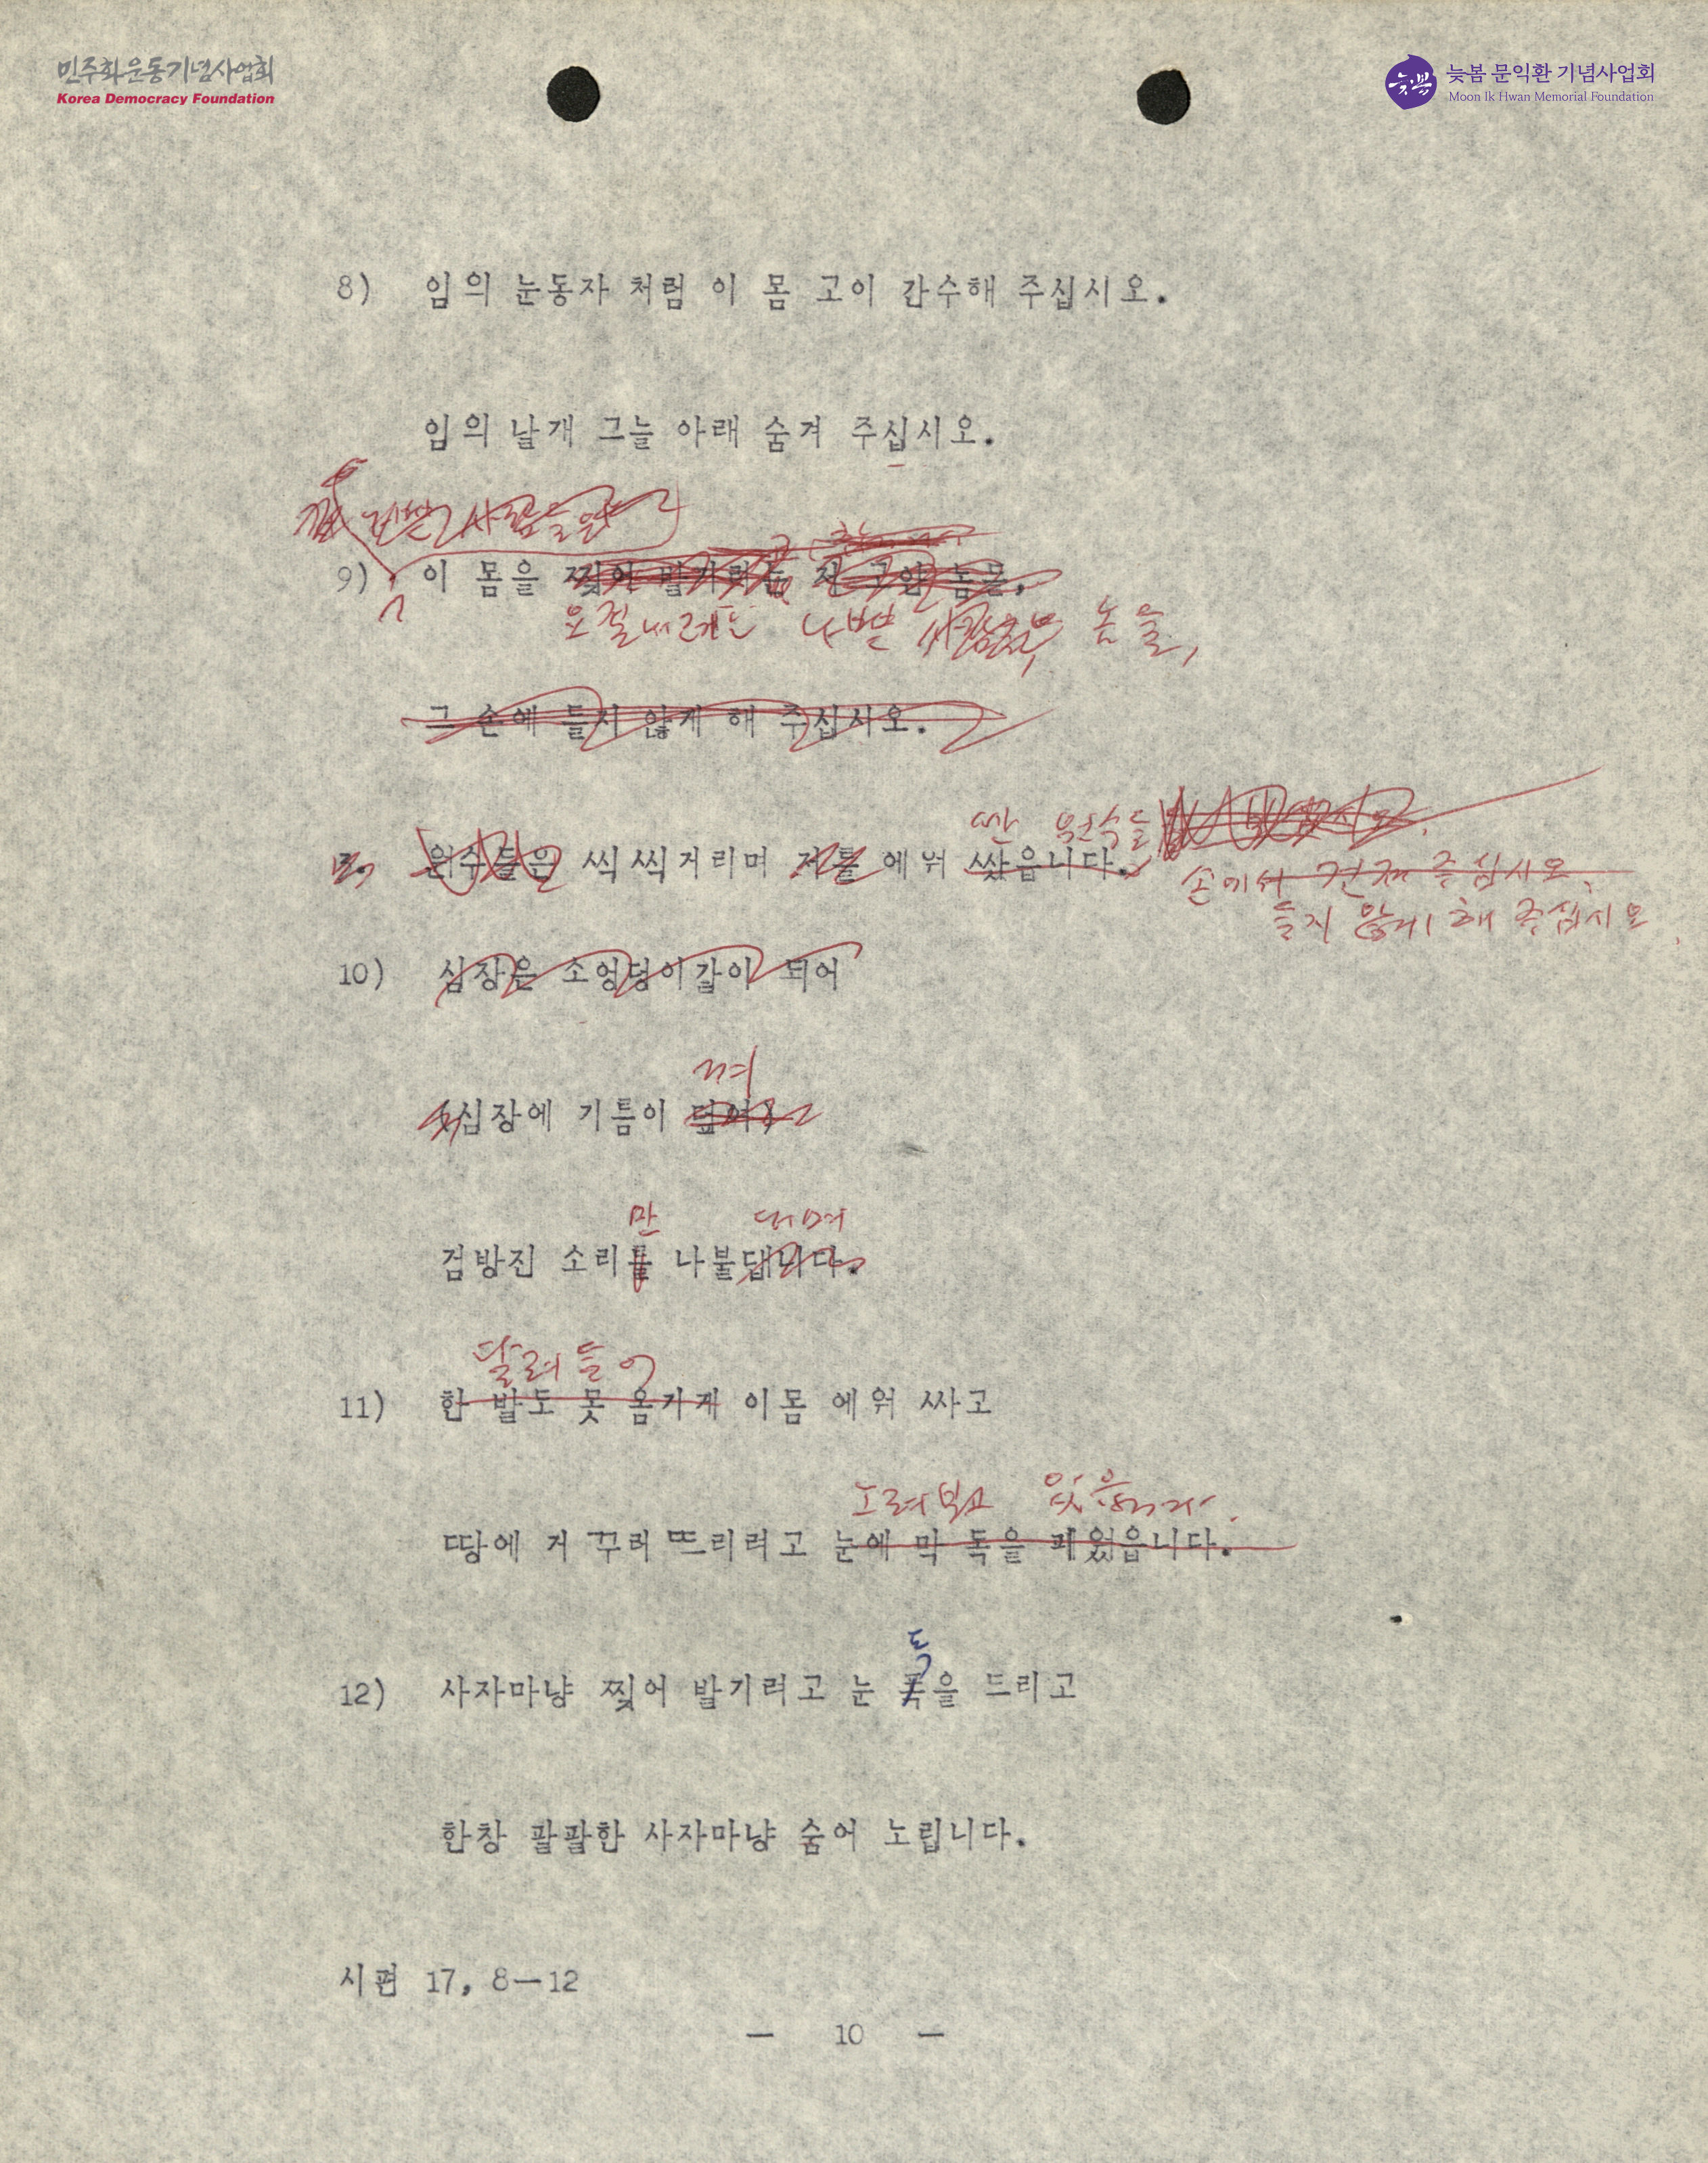 민주화운동기념사업회
Korea Democracy Foundation
늦봄
늦봄 문익환 기념사업회
Moon Ik Hwan Memorial Foundation
8) 임의 눈동자 처럼 이 몸 고이 간수해 주십시오.
임의 날개 그늘 아래 숨겨 주십시오.
사람들
9) 이 몸을 찢어 발기려는
요절내려는 나쁜 놈들,
그 손에 들지 않게 해 주십시오.
싼 원수들
원수들은 씩씩거리며 저를 에워 쌌읍니다.
손에서 건져 주십시오.
들지 않게 해 주십시오
10) 심장은 소엉덩이같이 되어
껴
(심장에 기름이 덮여)
만 대며
검방진 소리를 나불댑니다.
달려들어
11) 한 발도 못 옴기게 이몸 에워 싸고
노려보고 있읍니다.
땅에 거꾸러 뜨리려고 눈에 막 독을 피웠읍니다.
독
12) 사자마냥 찢어 발기려고 눈 폭을 드리고
한창 팔팔한 사자마냥 숨어 노립니다.
시편 17, 8—12
— 10 —